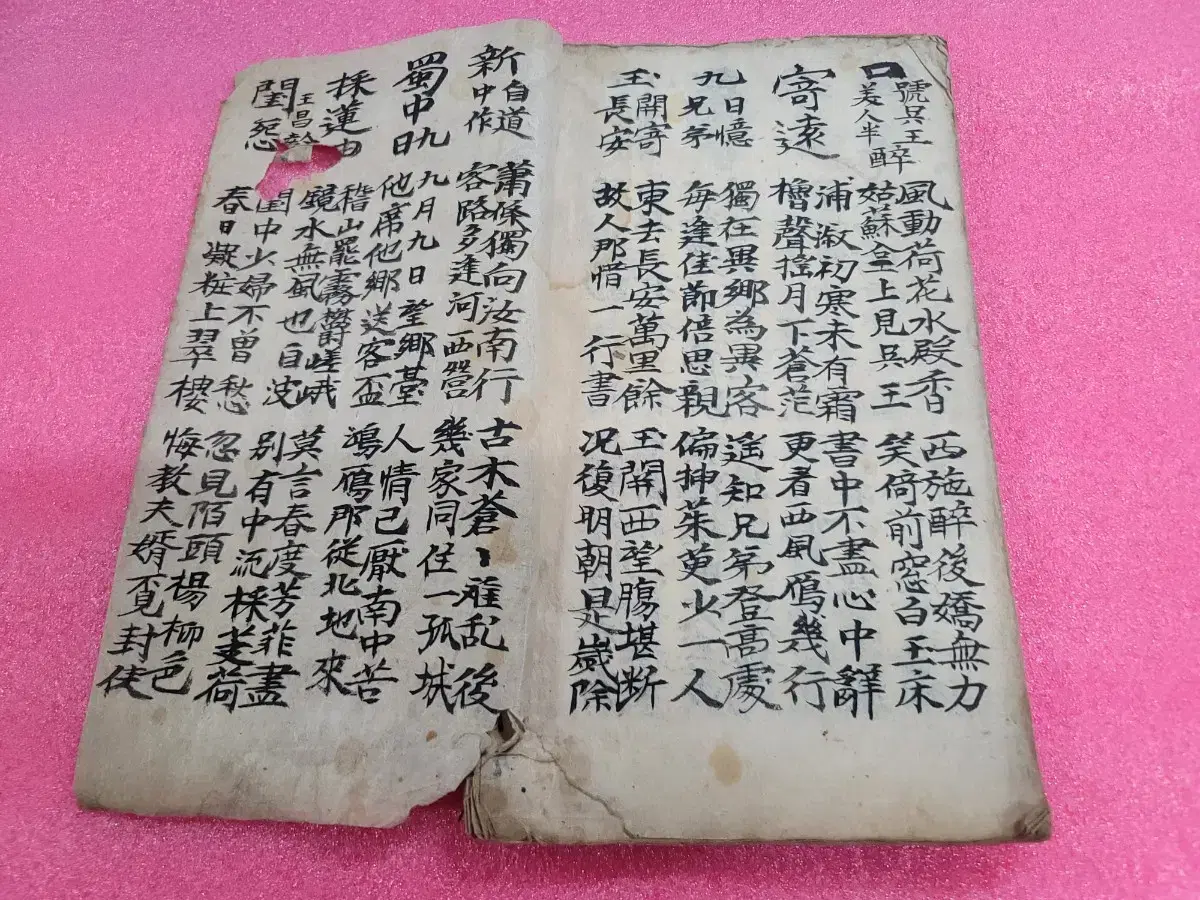 口號吳王
美人半醉
風動荷花水殿香
姑蘇臺上見吳王
西施醉後嬌無力
笑倚前窓白玉床
寄遠
浦溆初寒未有霜
櫓聲搖月下蒼茫
書中不盡心中辭
更看西風鴈幾行
九日憶
兄弟
獨在異鄉為異客
每逢佳節倍思親
遙知兄弟登高處
偏揷茱萸少一人
玉關寄
長安
東去長安萬里餘
故人那惜一行書
玉關西望腸堪断
况復明朝是歲除
新自道
中作
蕭條獨向汝南行
客路多逢河西營
古木蒼〻離乱後
幾家同住一孤城
蜀中九日
九月九日望鄉臺
他席他鄉送客盃
人情已厭南中苦
鴻鴈那從北地來
採蓮曲
稽山罷霧欝嵯峨
鏡水無風也自波
莫言春度芳菲盡
別有中流採芰荷
王昌齡
閨怨
閨中少婦不曾愁
春日凝粧上翠樓
忽見陌頭楊柳色
悔教夫婿覓封侯